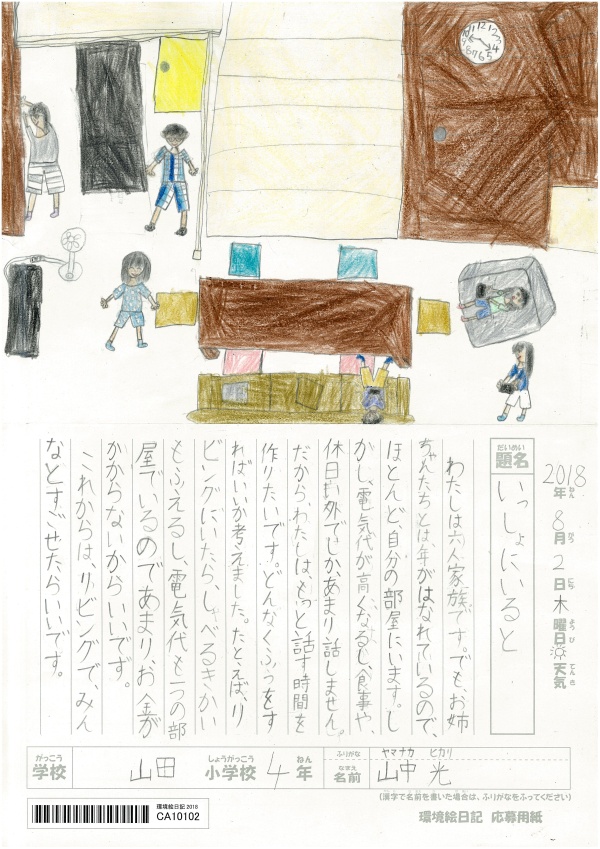 2018年 8月 2日 木曜日 天気
ねん がつ にち ようび てんき
だいめい
題名
いっしょにいると
わたしは六人家族です。でも、お姉
ちゃんたちとは、年がはなれているので、
ほとんど、自分の部屋にいます。し
かし、電気代が高くなるし、食事や、
休日い外でしかあまり話しません。
だから、わたしは、もっと話す時間を
作りたいです。どんなくふうをす
ればいいか考えました。たとえば、リ
ビングにいたら、しゃべるきかい
もふえるし、電気代も一つの部
屋でいるのであまり、お金が
かからないからいいです。
これからは、リビングで、みん
なとすごせたらいいです。
がっこう しょうがっこう ねん
学校 山田 小学校 4年
ふりがな ヤマナカ ヒカリ
なまえ
名前 山中 光
(漢字で名前を書いた場合は、ふりがなをふってください)
環境絵日記 2018
CA10102
環境絵日記 応募用紙